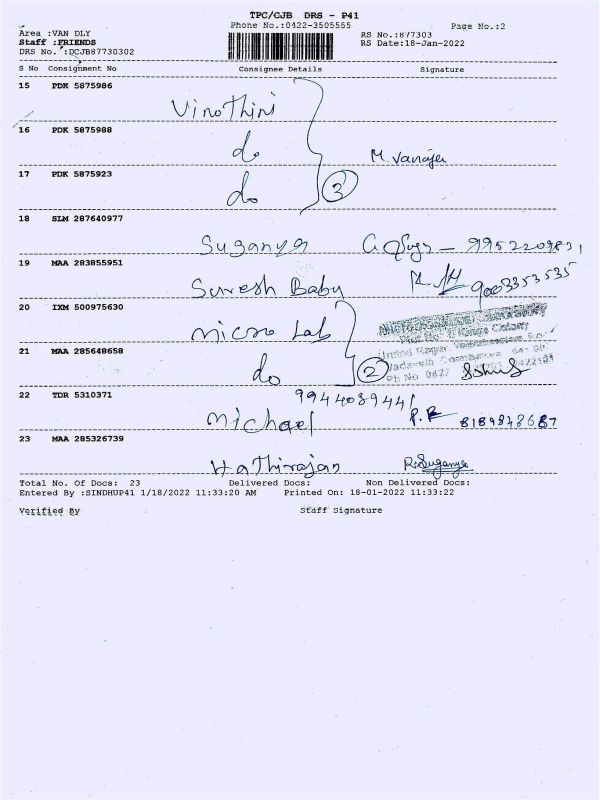 TPC/CJB DRS - P41
Phone No.:0422-3505555
Page No.:2
Area :VAN DLY
Staff :FRIENDS
DRS No. :DCJB87730302
RS No.:877303
RS Date:18-Jan-2022
S No Consignment No Consignee Details Signature
15 PDK 5875986
Vinothini
16 PDK 5875988
do M. Vanaja
17 PDK 5875923
do 3
18 SLM 287640977
Suganya
19 MAA 283855951
Suresh Babu 9003353535
20 IXM 500975630
Micro Lab
21 MAA 285648658
do 2
22 TDR 5310371
9944089441
Michael P.R 8189848687
23 MAA 285326739
Hathirajan R.Suganya
Total No. Of Docs: 23 Delivered Docs: Non Delivered Docs:
Entered By :SINDHUP41 1/18/2022 11:33:20 AM Printed On: 18-01-2022 11:33:22
Verified By Staff Signature